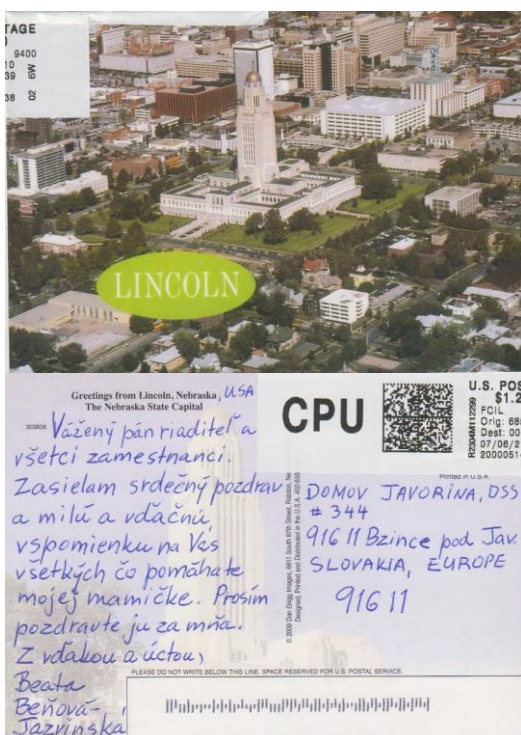 TAGE
9400
10
39
38
02 6W
LINCOLN
Greetings from Lincoln, Nebraska, USA
The Nebraska State Capital
Vážený pán riaditeľ a
všetci zamestnanci.
Zasielam srdečný pozdrav
a milú a vďačnú
vspomienku na Vás
všetkých čo pomáhate
mojej mamičke. Prosím
pozdravte ju za mňa.
Z vďakou a úctou,
Beata
Beňová-
Jazvinská
© 2009 Dan Grigg Images, 6811 South 87th Street, Ralston, Ne
Designed, Printed and Distributed in the U.S.A. 402-659
CPU
U.S. POS
$1.2
FCIL
Orig: 68
Dest: 00
07/06/2
2000051
R2304M112299
Printed in U.S.A.
DOMOV JAVORINA, DSS
# 344
916 11 Bzince pod Jav.
SLOVAKIA, EUROPE
916 11
PLEASE DO NOT WRITE BELOW THIS LINE. SPACE RESERVED FOR U.S. POSTAL SERVICE.